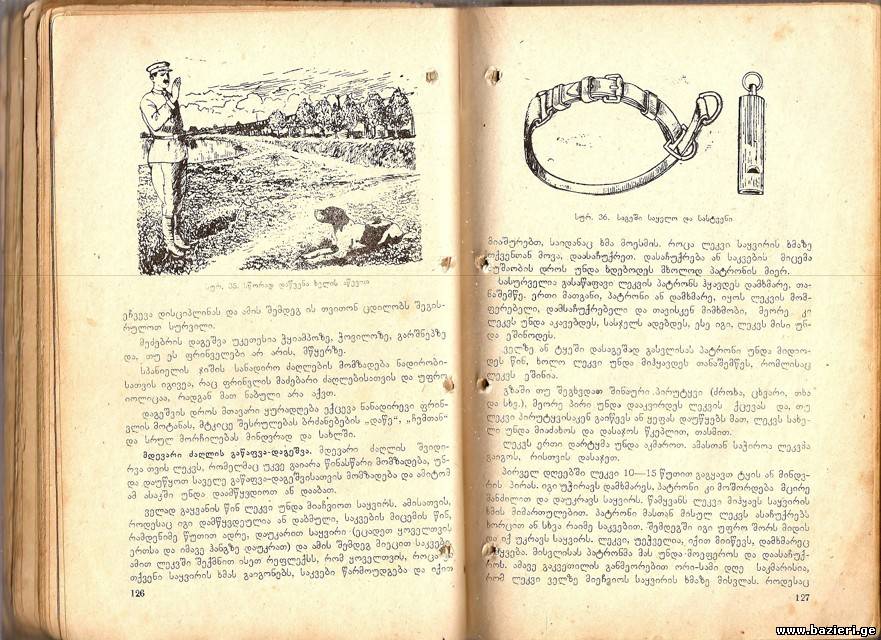 სურ. 35. სწორად დაწვენა ხელის აწევით
ეჩვევა დისციპლინას და ამის შემდეგ ის თვითონ ცდილობს შეგის-
რულოთ სურვილი.
მეძებრის დაგეშვა უკეთესია ჭყიამპოზე, ჭოვილოზე, გარშნებზე
და, თუ ეს ფრინველები არ არის, მწყერზე.
სპანიელის ჯიშის სანადირო ძაღლების მომზადება ნადირობი-
სათვის იგივეა, რაც ფრინვლის მაძებარი ძაღლებისათვის და უფრო
იოლიცაა, რადგან მათ ნაბული არა აქვთ.
დაგეშვის დროს მთავარი ყურადღება ექცევა ნანადირევი ფრინ-
ვლის მოტანას, მტკიცე შესრულებას ბრძანებების „დაწე“, „ჩემთან“
და სრულ მორჩილებას მინდვრად და სახლში.
მდევარი ძაღლის გაწაფვა-დაგეშვა. მდევარი ძაღლის შვიდი-
რვა თვის ლეკვს, რომელმაც უკვე გაიარა წინასწარი მომზადება, უნ-
და დაუწყოთ საველე გაწაფვა-დაგეშვისათვის მომზადება და ამიტომ
ამ ასაკში უნდა დაამწყვდიოთ ან დააბათ.
ველად გაყვანის წინ ლეკვი უნდა მიაჩვიოთ საყვირს. ამისათვის,
როდესაც იგი დამწყვდეულია ან დაბმული, საკვების მიცემის წინ,
რამდენიმე წუთით ადრე, დაუკარით საყვირი (ეცადეთ ყოველთვის
ერთსა და იმავე ჰანგზე დაუკრათ) და ამის შემდეგ მიეცით საკვები.
ამით ლეკვში შექმნით ისეთ რეფლექსს, რომ ყოველთვის, როცა
თქვენი საყვირის ხმას გაიგონებს, საკვები წარმოუდგება და იქით
126
სურ. 36. საგეში საყელო და სასტვენი
მიაშურებთ, საიდანაც ხმა მოესმის. როცა ლეკვი საყვირის ხმაზე
თქვენთან მოვა, დაასაჩუქრეთ. დასაჩუქრება ან საკვების მიცემა
მუშაობის დროს უნდა ხდებოდეს მხოლოდ პატრონის მიერ.
სასურველია გასაწაფავი ლეკვის პატრონს ჰყავდეს დამხმარე, თა-
ნაშემწე. ერთი მათგანი, პატრონი ან დამხმარე, იყოს ლეკვის მომ-
ფერებელი, დამსაჩუქრებელი და თავისკენ მიმხმობი, მეორე კი
ლეკვს უნდა აკავებდეს, სასჯელს ადებდეს, ესე იგი, ლეკვს მისი უნ-
და ეშინოდეს.
ველზე ან ტყეში დასაგეშად გასვლისას პატრონი უნდა მიდიო-
დეს წინ, ხოლო ლეკვი უნდა მიჰყავდეს თანაშემწეს, რომლისაც
ლეკვს ეშინია.
გზაში თუ შეგხვდათ შინაური პირუტყვი (ძროხა, ცხვარი, თხა
და სხვ.), მეორე პირი უნდა დააკვირდეს ლეკვის ქცევას და, თუ
ლეკვი პირუტყვისაკენ გაიწევს ან ყეფას დაუწყებს მათ, ლეკვს სახე-
ლი უნდა მიაძახოს და დასაჯოს წკეპლით, თასმით.
ლეკვს ერთი დარტყმა უნდა აკმაროთ. ამასთან საჭიროა ლეკვმა
გაიგოს, რისთვის დასაჯეთ.
პირველ დღეებში ლეკვი 10—15 წუთით გაგყავთ ტყის ან მინდვ-
რის პირას. იგი უჭირავს დამხმარეს. პატრონი კი მოშორდება მცირე
მანძილით და დაუკრავს საყვირს. წამყვანს ლეკვი მიჰყავს საყვირის
ხმის მიმართულებით. პატრონი მასთან მისულ ლეკვს ასაჩუქრებს
ხორცით ან სხვა რაიმე საკვებით. შემდეგში იგი უფრო შორს მიდის
და იქ უკრავს საყვირს. ლეკვი, უეჭველია, იქით მიიწევს, დამხმარეც
მიჰყვება. მისვლისას პატრონმა მას უნდა მოეფეროს და დაასაჩუქ-
როს. ამავე გაკვეთილის განმეორებით ორი-სამი დღე საკმარისია,
რომ ლეკვი ველზე მიეჩვიოს საყვირის ხმაზე მისვლას. როდესაც
127
www.bazieri.ge